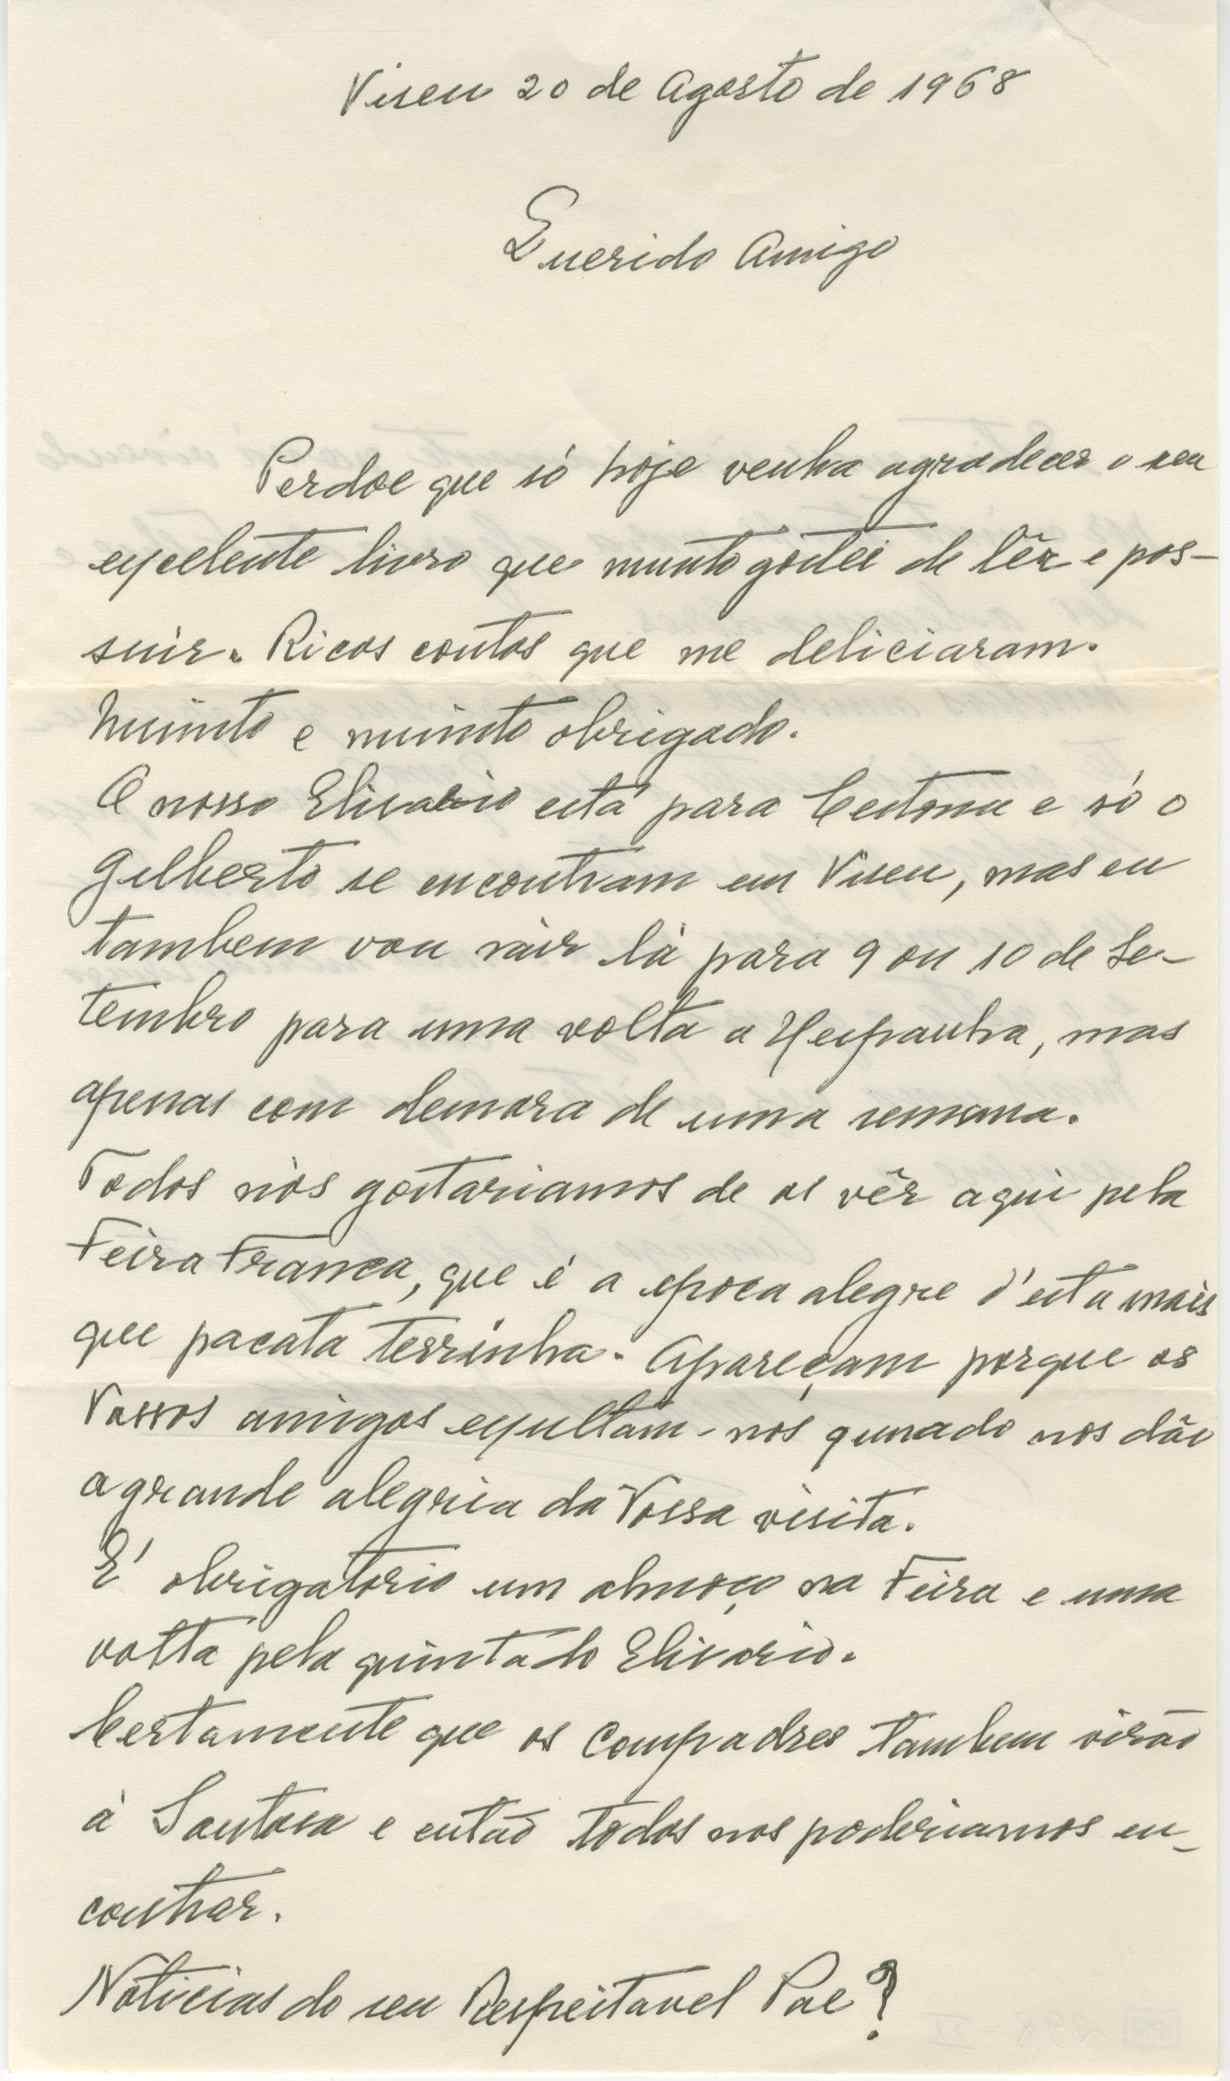 Viseu 20 de Agosto de 1968
Querido Amigo
Perdoe que só hoje venha agradecer o seu
excelente livro que munto gostei de lêr e pos-
suir. Ricos contos que me deliciaram.
Muinto e muinto obrigado.
O nosso Elisario está para Cestona e só o
Gilberto se encontram em Viseu, mas eu
tambem vou sair lá para 9 ou 10 de Se-
tembro para uma volta a Hespanha, mas
apenas com demora de uma semana.
Todos nós gostariamos de os vêr aqui pela
Feira Franca, que é a epoca alegre d'esta mais
que pacata terrinha. Apareçam porque os
Vossos amigos exultam-nos qunado nos dão
a grande alegria da Vossa visita.
E' obrigatorio um almoço na Feira e uma
volta pela quinta do Elisario.
Certamente que os Compadres tambem virão
á e então todos nos poderiamos en-
contrar.
Noticias do seu Respeitavel Pae?